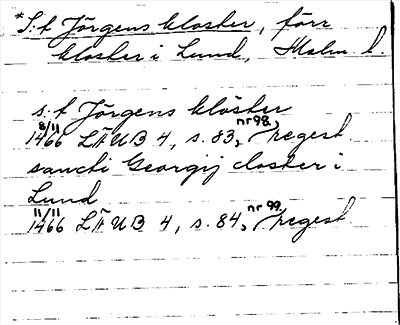 *S:t Jörgens kloster, förr
kloster i Lund, Malm. l.
s:t Jörgens klöster
8/11 1466 LÄUB 4, s. 83, nr 98, regest
sancti Georgij closter i
Lund
11/11 1466 LÄUB 4, s. 84, nr 99, regest